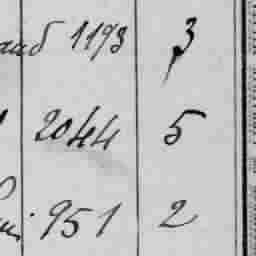 1193 3
2044 5
951 2